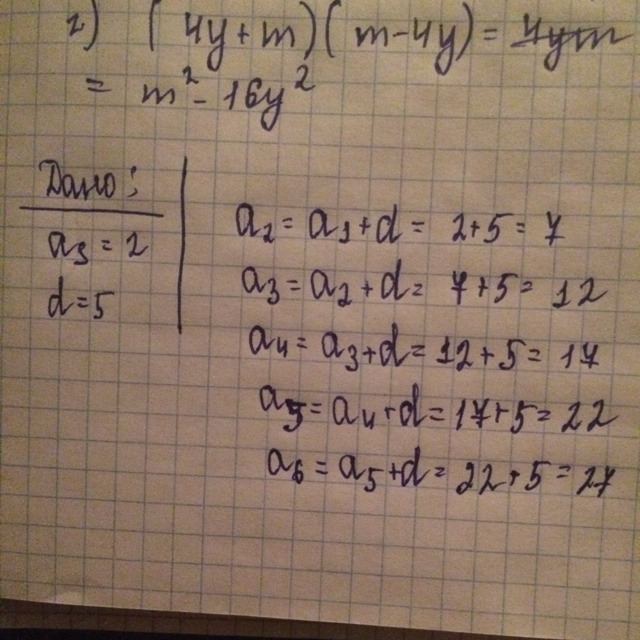 г) (4y+m)(m-4y)= 4ym
= m²-16y²
Дано:
a₁ = 2
d=5
a₂= a₁+d= 2+5= 7
a₃= a₂+d= 7+5= 12
a₄= a₃+d= 12+5= 17
a₅= a₄+d= 17+5= 22
a₆= a₅+d= 22+5= 27